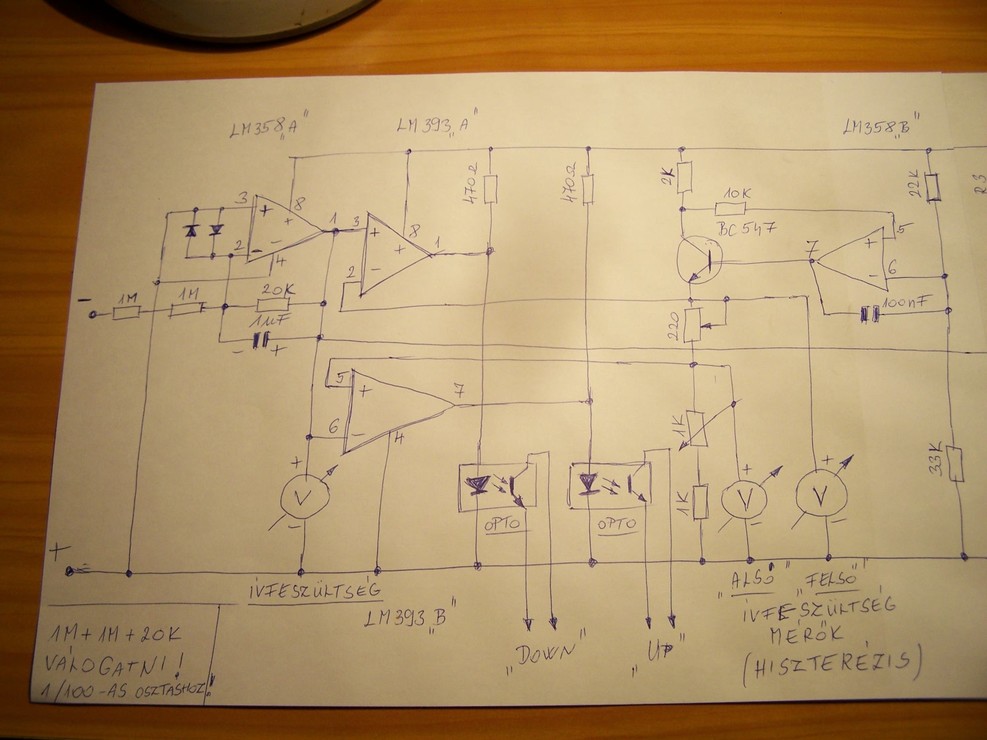 LM358„A"
LM393„A"
LM358„B"
470Ω
470Ω
2K
10K
BC547
22K
R3
3
8
1
2
4
3
8
1
2
7
5
6
-
1M
1M
20K
1µF
- +
220
100nF
5
7
6
4
1K
1K
33K
+
V
-
OPTO
OPTO
+
V
-
+
V
-
+
ÍVFESZÜLTSÉG
LM393„B"
„ALSÓ" „FELSŐ"
ÍVFESZÜLTSÉG
MÉRŐK
(HISZTERÉZIS)
„DOWN"
„UP"
1M+1M+20K
VÁLOGATNI!
1/100-AS OSZTÁSHOZ!